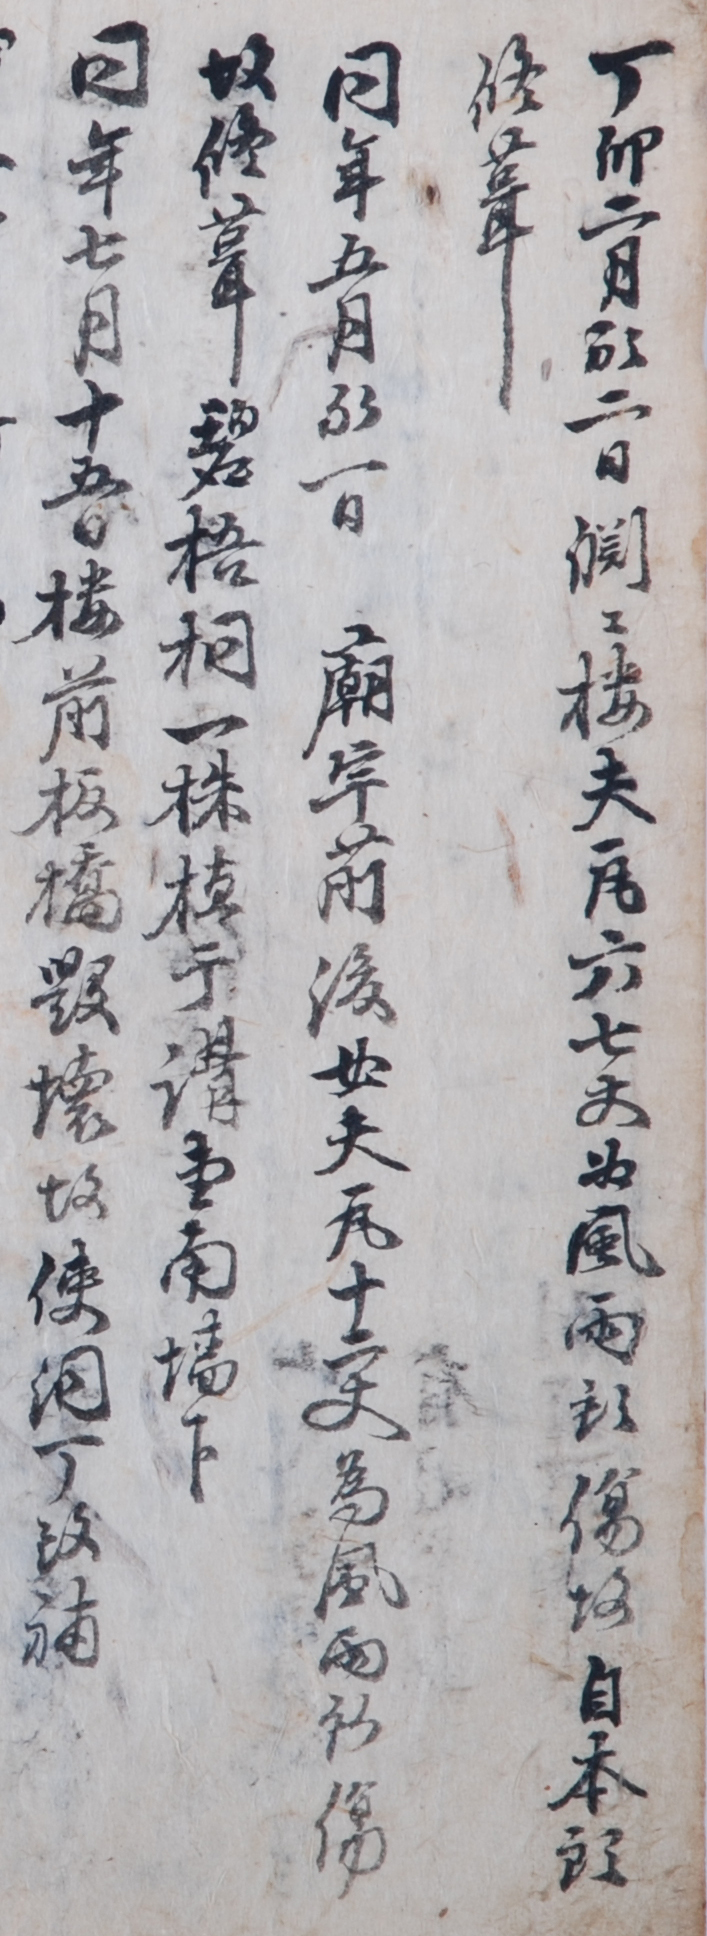 丁卯二月初二日僩〻樓夫瓦六七丈為風雨所傷故自本所
修葺
同年五月初一日 廟宇前後女夫瓦十二丈為風雨所傷
故修葺 碧梧桐一株植于講堂南墻下
同年七月十五日樓前板橋毀壞故使洞丁改補